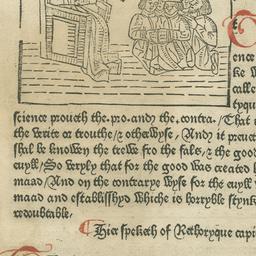 ence
ke w
calle
tyque
science proueth the .pro. and the .contra./ That i
the verite or trouthe/ & otherwyse/ And it preuet
shal be knowen the trewe fro the fals/ & the good
euyll/ So veryly that for the good was created h
maad/ And on the contrarye wyse for the euyll w
maad and establisshyd whiche is horryble stynk
redoubtable/
Hier speketh of Rethoryque capi